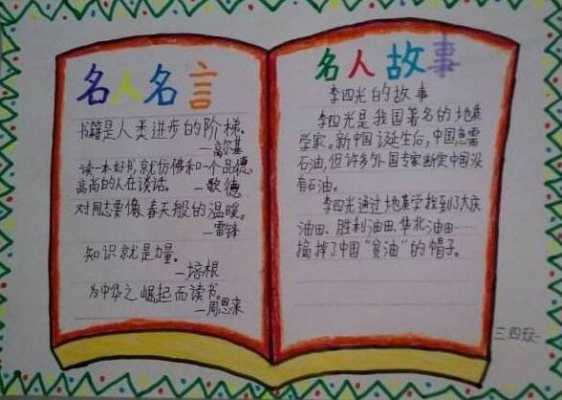 名人名言
书籍是人类进步的阶梯。
—高尔基
读一本好书,就仿佛和一个品德
高尚的人在谈话。 —歌德
对同志要像春天般的温暖。
—雷锋
知识就是力量。
—培根
为中华之崛起而读书。
—周恩来
名人故事
李四光的故事
李四光是我国著名的地质
学家。新中国诞生后,中国急需
石油,但许多外国专家断定中国没
有石油。
李四光通过地质学找到了大庆
油田、胜利油田、华北油田……
摘掉了中国“贫油”的帽子。
三四